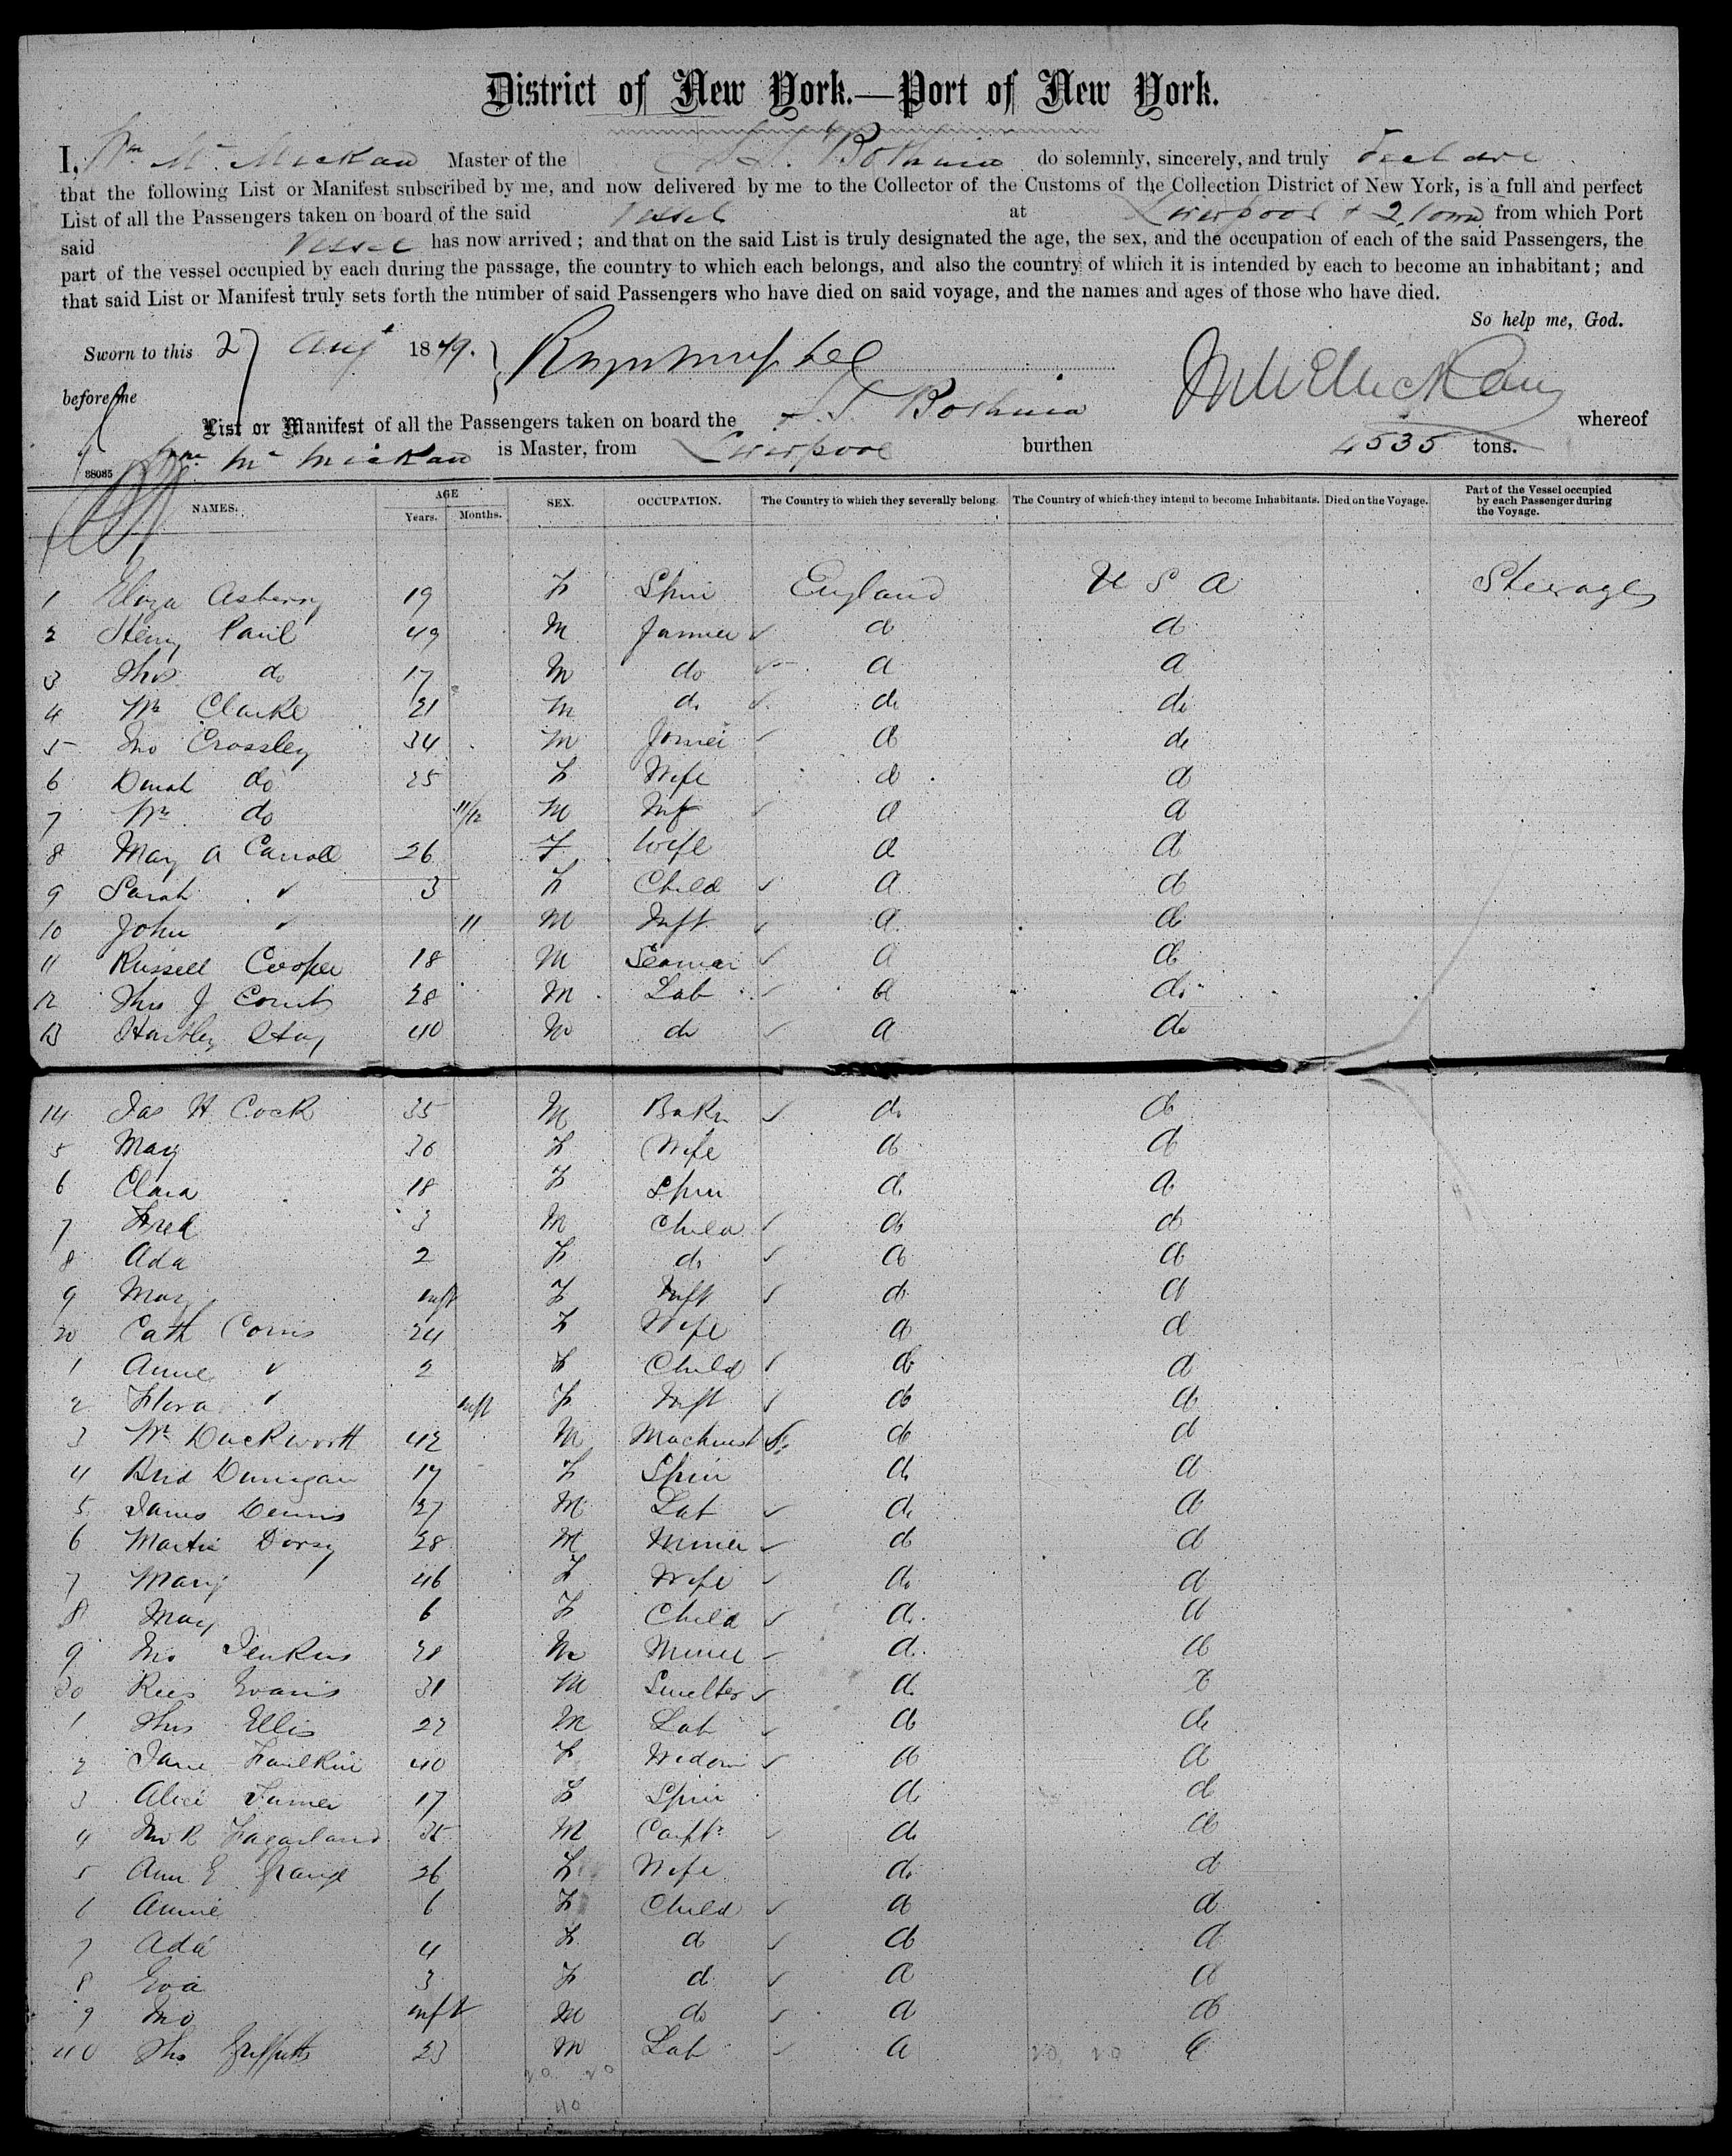 District of New York.—Port of New York.
I, Wm McMickan Master of the S.S. Bothnia do solemnly, sincerely, and truly declare
that the following List or Manifest subscribed by me, and now delivered by me to the Collector of the Customs of the Collection District of New York, is a full and perfect
List of all the Passengers taken on board of the said Vessel at Liverpool & Q.town from which Port
said Vessel has now arrived; and that on the said List is truly designated the age, the sex, and the occupation of each of the said Passengers, the
part of the vessel occupied by each during the passage, the country to which each belongs, and also the country of which it is intended by each to become an inhabitant; and
that said List or Manifest truly sets forth the number of said Passengers who have died on said voyage, and the names and ages of those who have died.
So help me, God.
Sworn to this 27 Augt 1879.
before me
List or Manifest of all the Passengers taken on board the S.S Bothnia whereof
Wm McMickan is Master, from Liverpool burthen 4535 tons.
88085
NAMES. AGE Years. Months. SEX. OCCUPATION. The Country to which they severally belong. The Country of which they intend to become Inhabitants. Died on the Voyage. Part of the Vessel occupied by each Passenger during the Voyage.
1 Eliza Asberry 19 F Spin England U S A Steerage
2 Henry Paul 49 M Farmer do do
3 Thos do 17 M do do do
4 Wm Clarke 21 M do do do
5 Jno Crossley 34 M Joiner do do
6 do 25 F Wife do do
7 Wm do 11/12 M Inft do do
8 Mary A Carroll 26 F Wife do do
9 Sarah " 3 F Child do do
10 John " 11 M Inft do do
11 Russell Cooper 18 M Seaman do do
12 Thos J 28 M Lab do do
13 Hartley 40 M do do do
14 Jas H Cock 35 M Bakr do do
5 Mary 30 F Wife do do
6 Clara 18 F Spin do do
7 Fred 3 M Child do do
8 Ada 2 F do do do
9 Mary inft F Inft do do
20 Cath Corris 24 F Wife do do
1 Annie " 2 F Child do do
2 Flora " inft F Inft do do
3 Wm Duckworth 42 M Machinist do do
4 Brid Dunigan 17 F Spin do do
5 James Dennis 27 M Lab do do
6 Martin Dorsy 28 M Miner do do
7 Mary 46 F Wife do do
8 Mary 6 F Child do do
9 Jno Jenkins 28 M Miner do do
30 Rees Evans 31 M Smelter do do
1 Thos Ellis 27 M Lab do do
2 Jane Faulkin 40 F Widow do do
3 Alice Turner 17 F Spin do do
4 Jno R Fagarland 35 M Carptr do do
5 Ann E Grange 26 F Wife do do
6 Annie 6 F Child do do
7 Ada 4 F do do do
8 Eva 3 F do do do
9 Jno inft M do do do
40 Thos Griffiths 23 M Lab do do
20 20 20 20
40